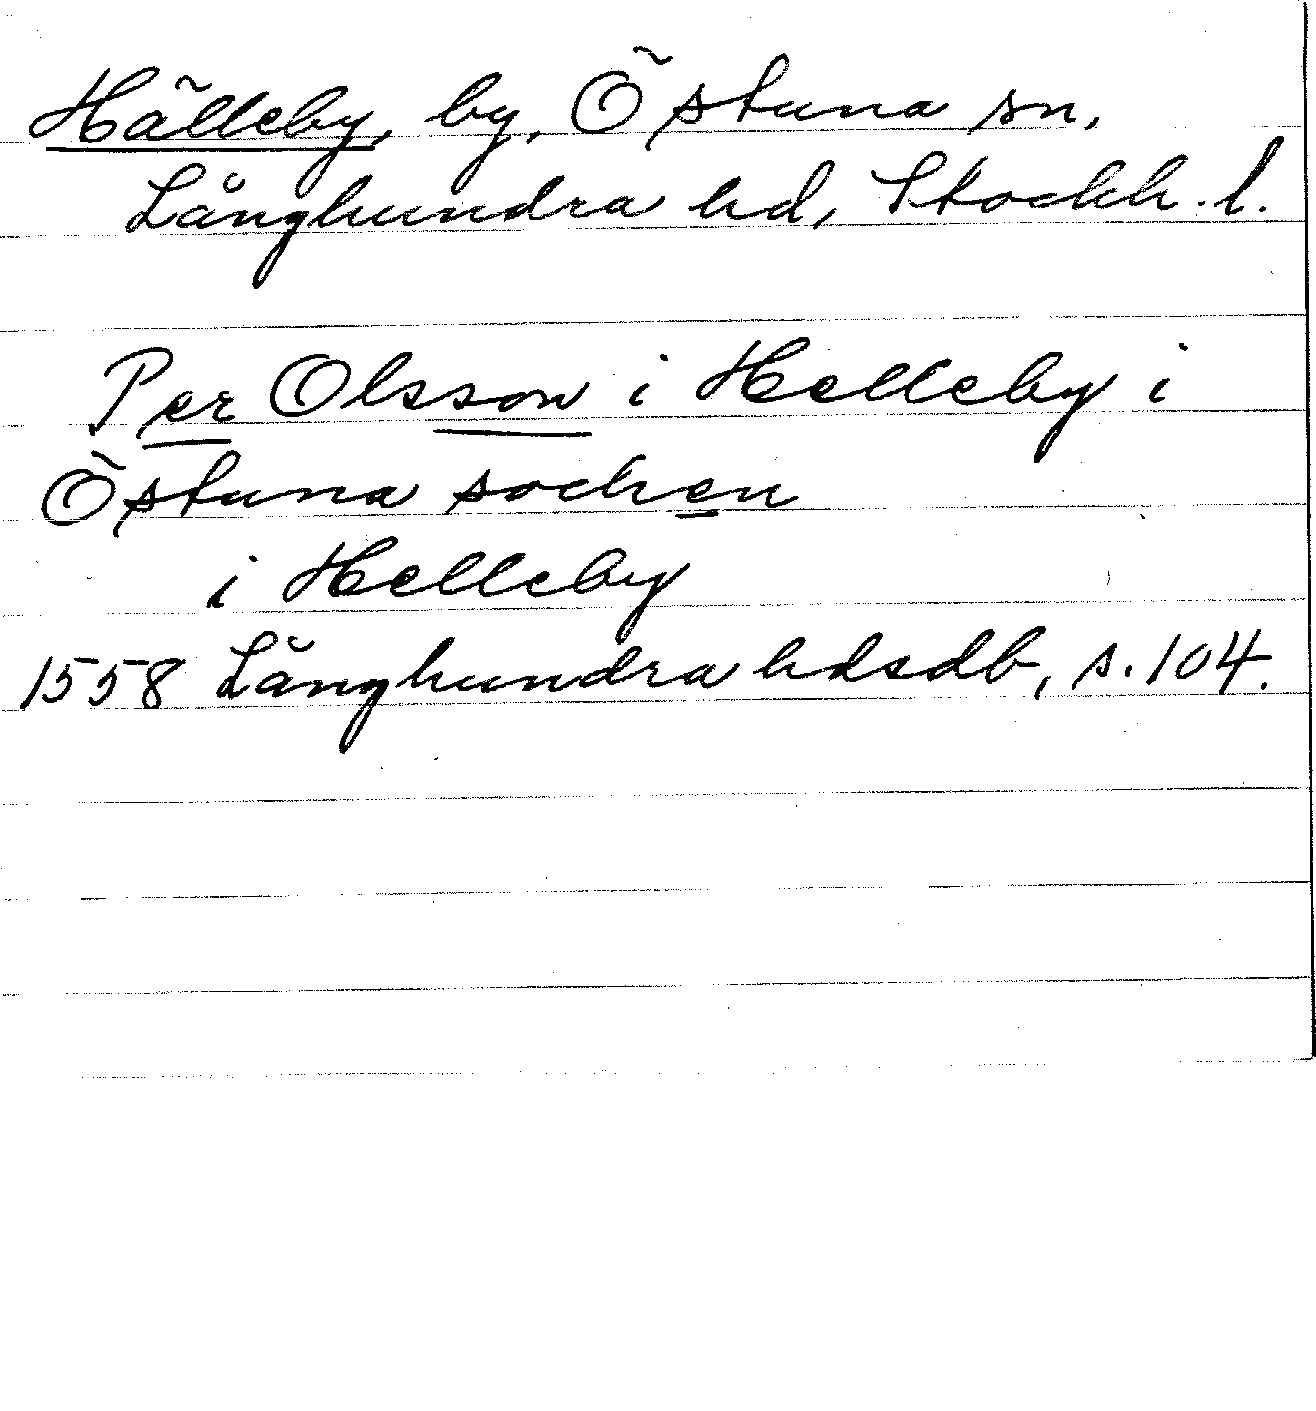 Hälleby, by, Östuna sn,
Långhundra hd, Stockh. l.
Per Olsson i Helleby i
Östuna socken
i Helleby
1558 Långhundra hdsdb, s. 104.